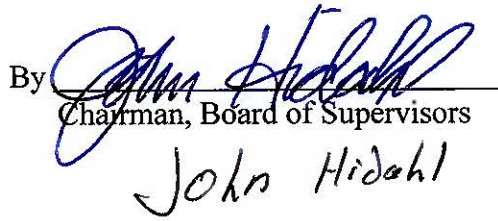 By John Hidahl
Chairman, Board of Supervisors
John Hidahl